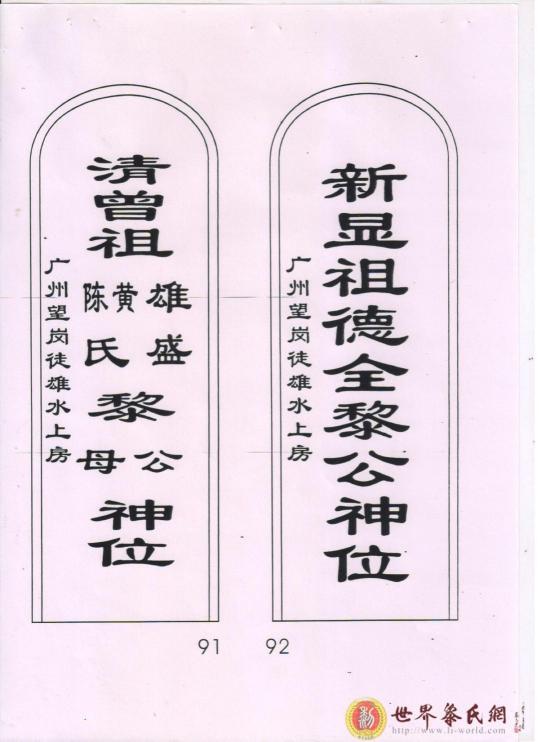 清曾祖
雄盛 公
黄陈氏 母
黎
神位
广州望岗徒雄水上房
91
新显祖德全黎公神位
广州望岗徒雄水上房
92
世界黎氏網
http://www.li-world.com